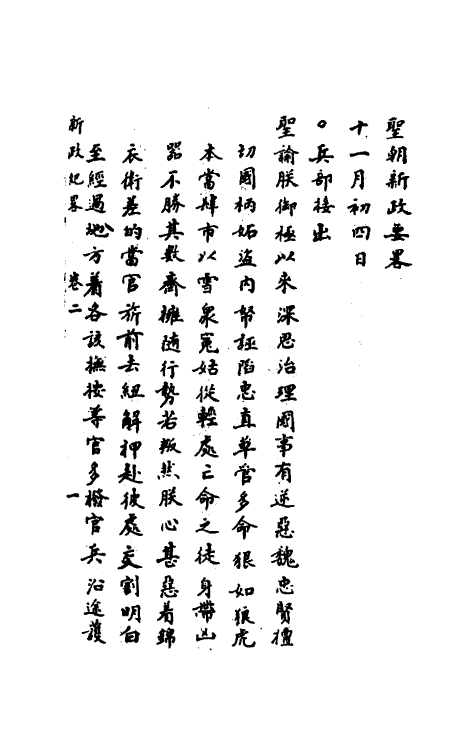 聖朝新政要畧
十一月初四日
○兵部接出
聖諭朕御極以來深思治理國事有逆惡魏忠賢擅
切國柄妬盜內帑誣陷忠直草菅多命狠如狼虎
本當肆市以雪眾冤姑從輕處亡命之徒身帶凶
器不勝其數齋擁隨行勢若叛然朕心甚惡着錦
衣衛差的當官旂前去紐解押赴彼處交割明白
至經過地方着各該撫按等官多撥官兵沿途護
新政紀畧 卷二 一